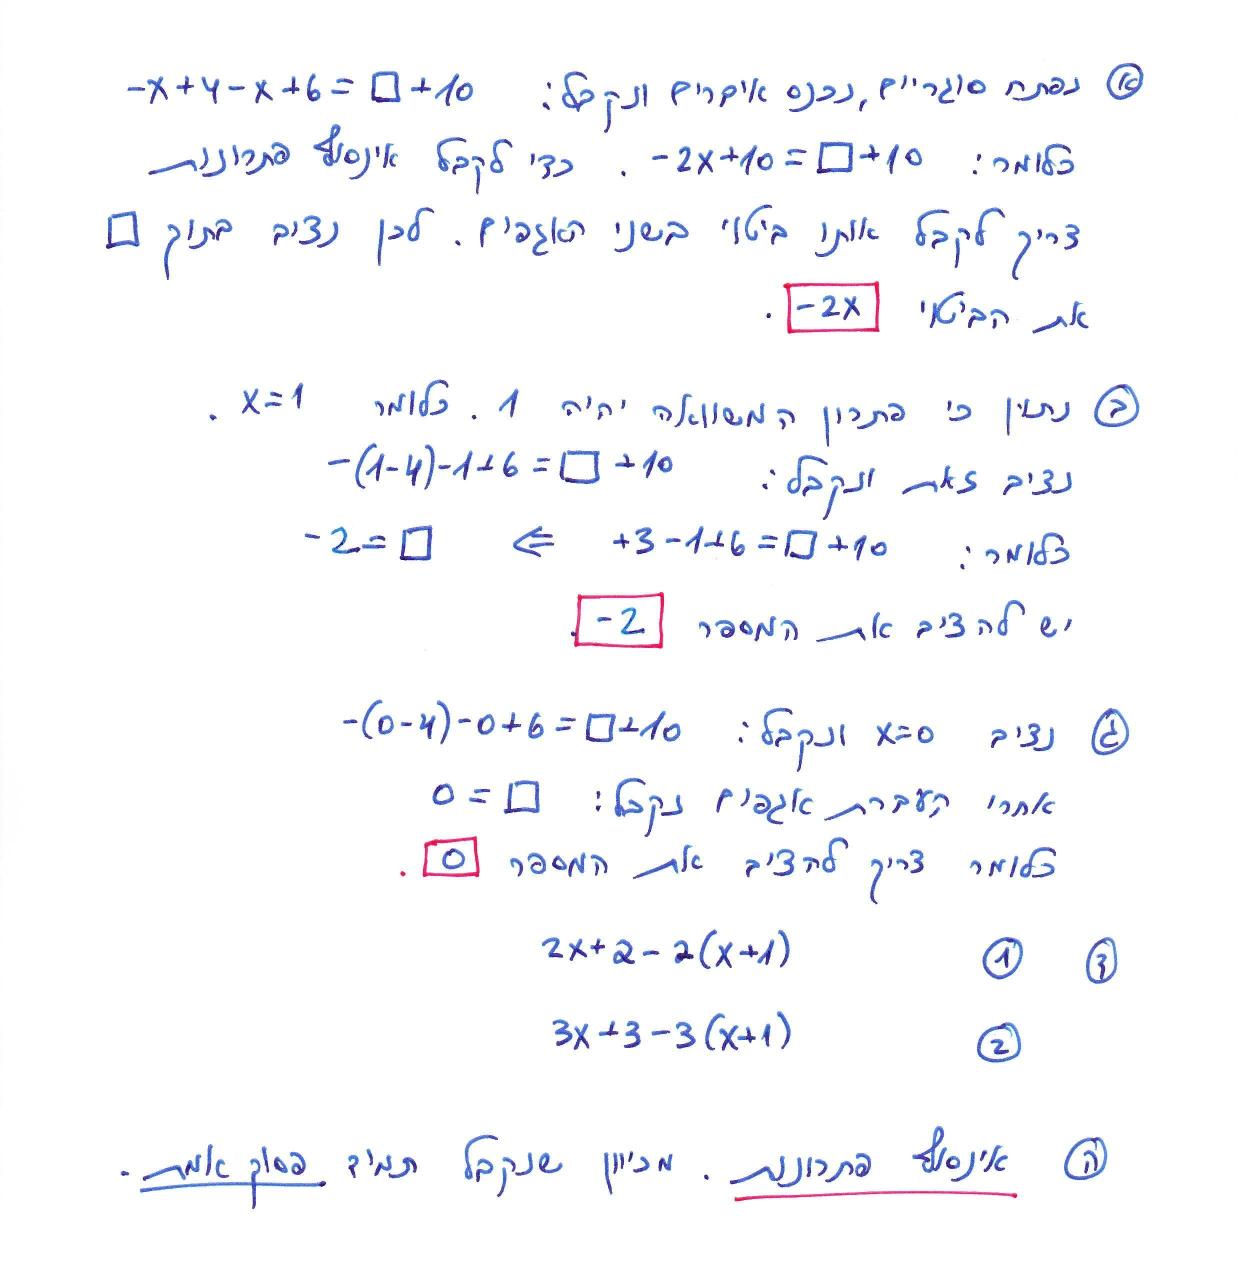 א נפתח סוגריים, נכנס איברים ונקבל: -x+4-x+6=□+10
כלומר: -2x+10=□+10 . כדי לקבל אינסוף פתרונות
צריך לקבל אותו ביטוי בשני האגפים. לכן נציב בתוך □
את הביטוי -2x .
ב נתון כי פתרון המשוואה יהיה 1 . כלומר x=1 .
נציב זאת ונקבל: -(1-4)-1+6=□+10
כלומר: +3-1+6=□+10 ⇐ -2=□
יש להציב את המספר -2 .
ג נציב x=0 ונקבל: -(0-4)-0+6=□+10
אחרי העברת אגפים נקבל: 0=□
כלומר צריך להציב את המספר 0 .
ד 1 2x+2-2(x+1)
2 3x+3-3(x+1)
ה אינסוף פתרונות . מכיוון שנקבל תמיד פסוק אמת .